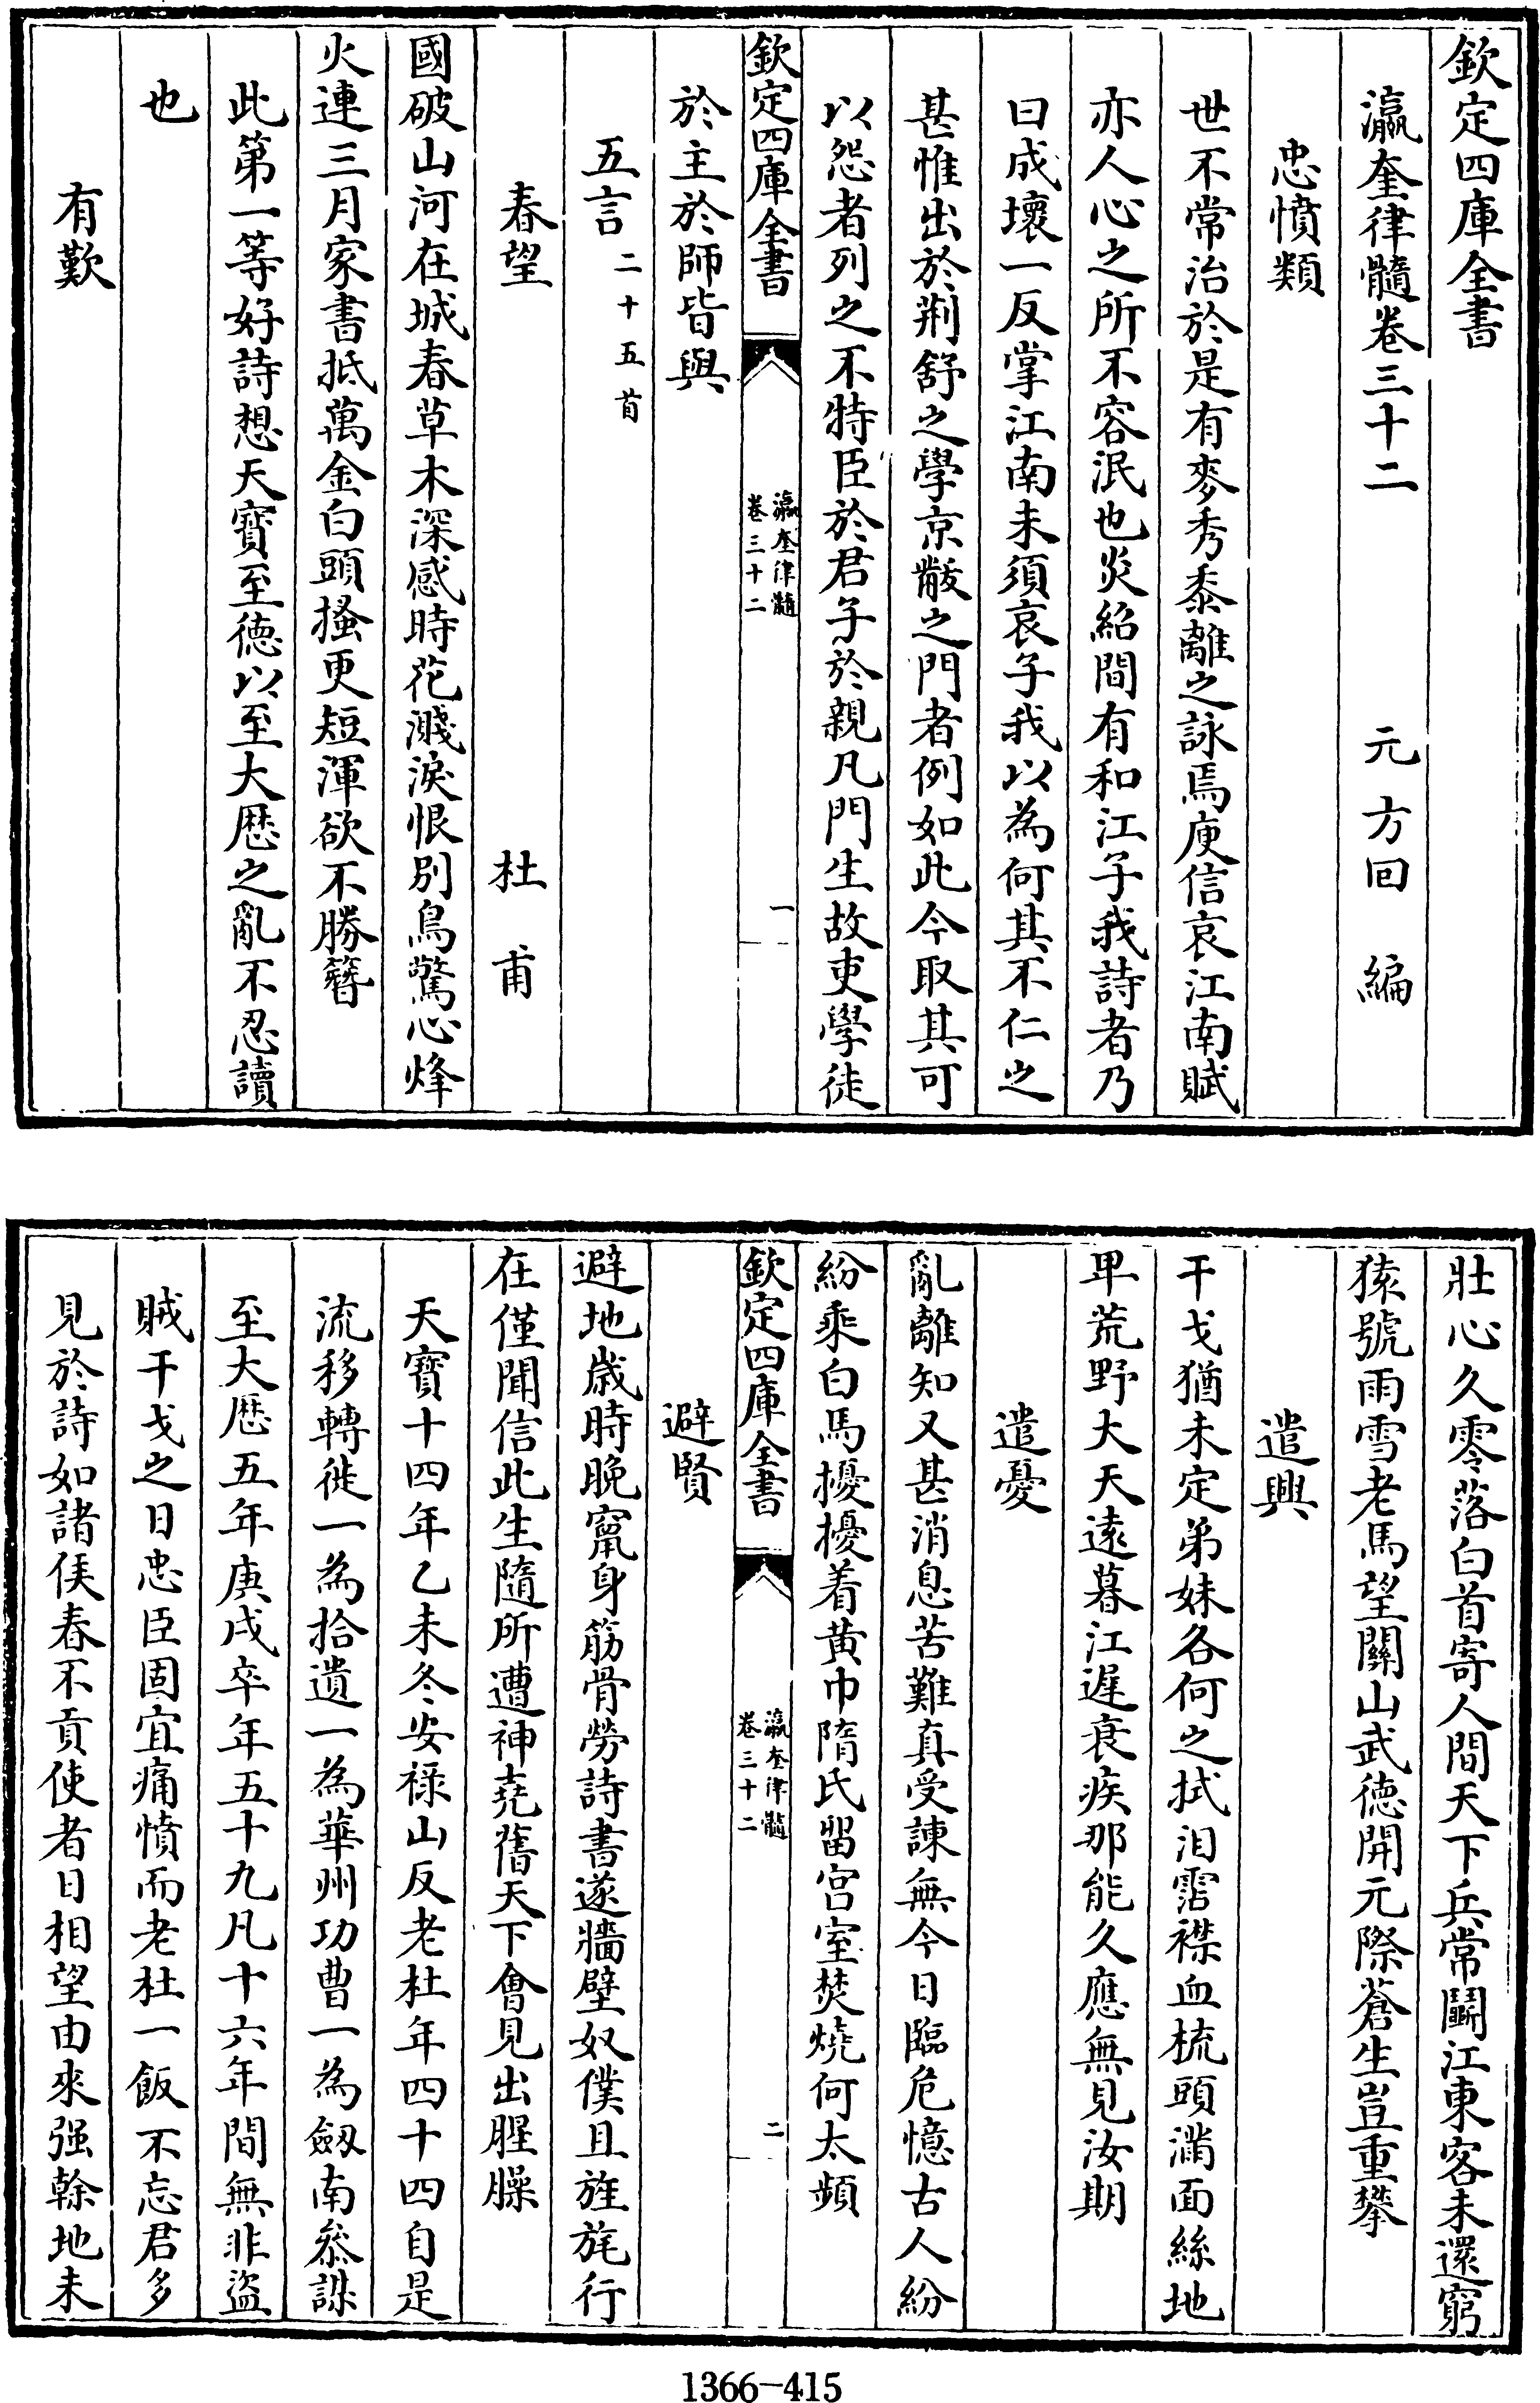 欽定四庫全書
瀛奎律髓卷三十二 元 方回 編
忠憤類
世不常治於是有麥秀黍離之詠焉庾信哀江南賦
亦人心之所不容泯也炎紹間有和江子我詩者乃
曰成壞一反掌江南未須哀子我以為何其不仁之
甚惟出於荆舒之學京黻之門者例如此今取其可
以怨者列之不特臣於君子於親凡門生故吏學徒
欽定四庫全書 瀛奎律髓卷三十二 一
於主於師皆與
五言二十五首
春望 杜甫
國破山河在城春草木深感時花濺淚恨别鳥驚心烽
火連三月家書抵萬金白頭搔更短渾欲不勝簪
此第一等好詩想天寶至徳以至大厯之亂不忍讀
也
有歎
壯心久零落白首寄人間天下兵常鬬江東客未還窮
猿號雨雪老馬望關山武徳開元際蒼生豈重攀
遣興
干戈猶未定弟妹各何之拭淚霑襟血梳頭滿面絲地
卑荒野大天遠暮江遲衰疾那能久應無見汝期
遣憂
亂離知又甚消息苦難真受諫無今日臨危憶古人紛
紛乘白馬擾擾着黄巾隋氏留宫室焚燒何太頻
欽定四庫全書 瀛奎律髓卷三十二 二
避賢
避地歲時晚竄身筋骨勞詩書遂牆壁奴僕且旌旄行
在僅聞信此生隨所遭神堯舊天下會見出腥臊
天寶十四年乙未冬安禄山反老杜年四十四自是
流移轉徙一為拾遺一為華州功曹一為劔南叅謀
至大厯五年庚戌卒年五十九凡十六年間無非盜
賊干戈之日忠臣固宜痛憤而老杜一飯不忘君多
見於詩如諸侯春不貢使者日相望由來强榦地未
1366-415